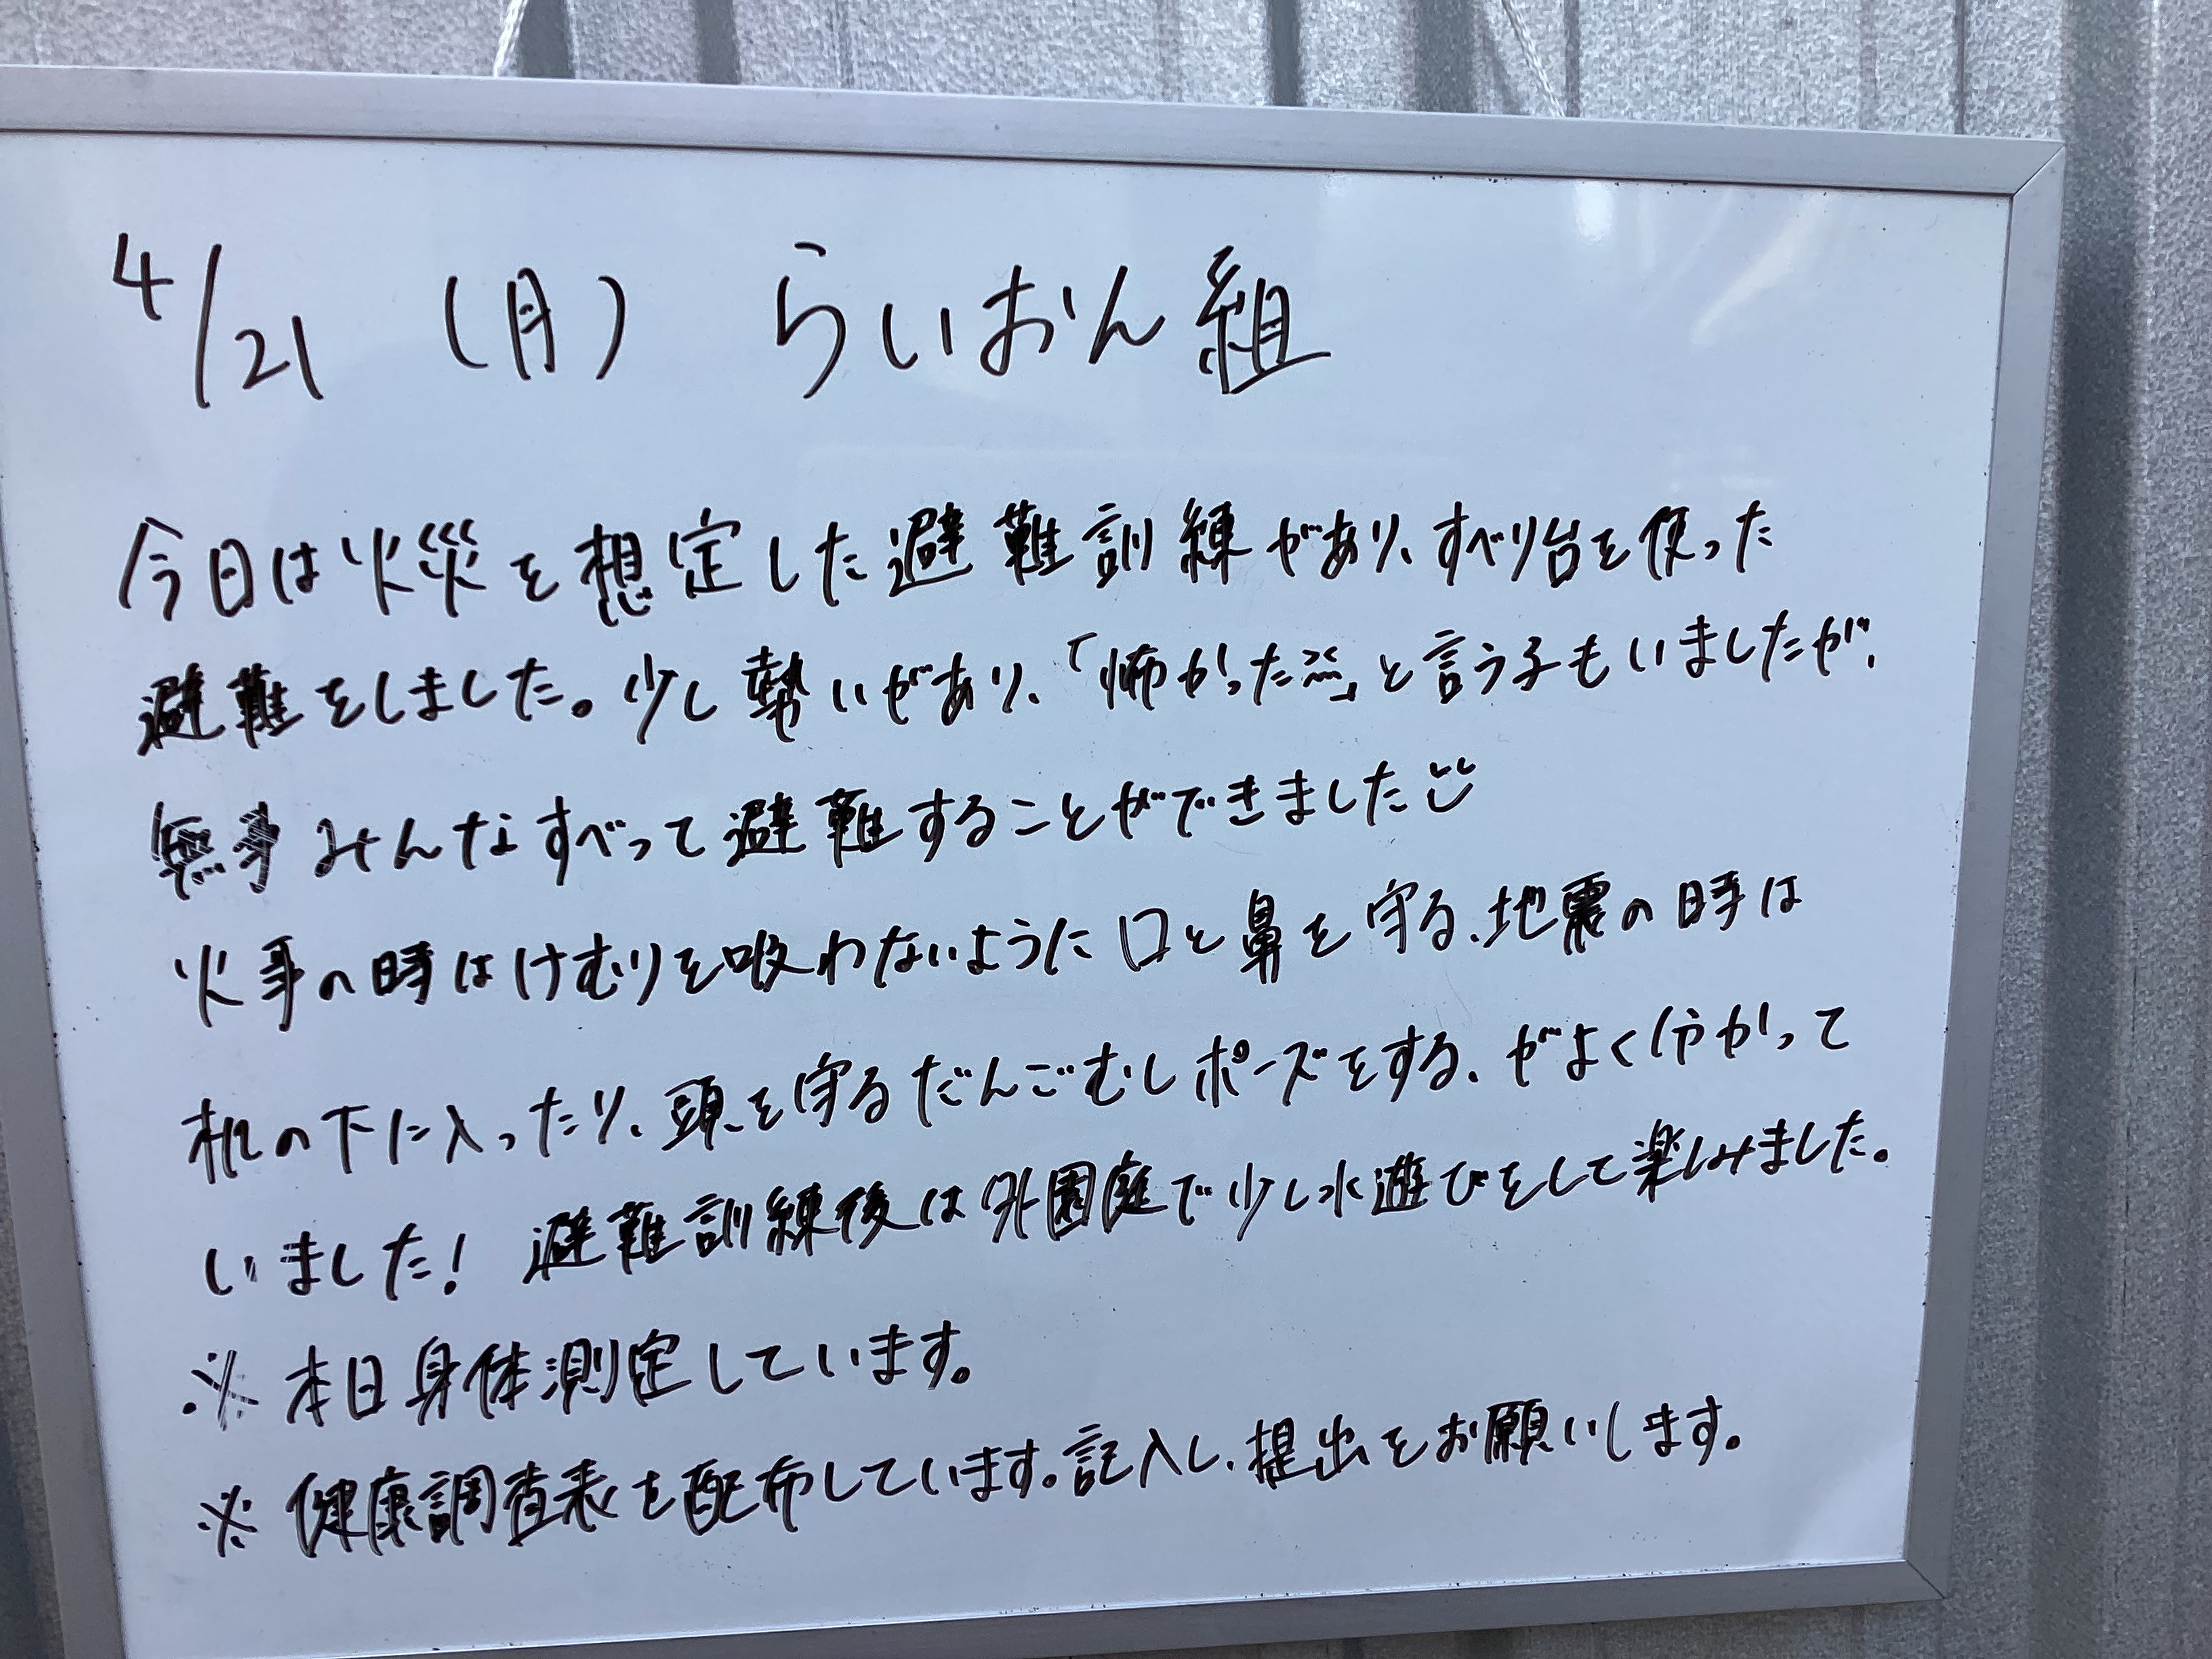 4/21 (月) らいおん組
今日は火災を想定した避難訓練があり、すべり台を使った
避難をしました。少し勢いがあり、「怖かった」と言う子もいましたが、
無事みんなすべって避難することができました
火事の時はけむりを吸わないように口と鼻を守る、地震の時は
机の下に入ったり、頭を守るだんごむしポーズをする、がよく分かって
いました! 避難訓練後は外園庭で少し水遊びをして楽しみました。
※ 本日身体測定しています。
※ 健康調査表を配布しています。記入し、提出をお願いします。